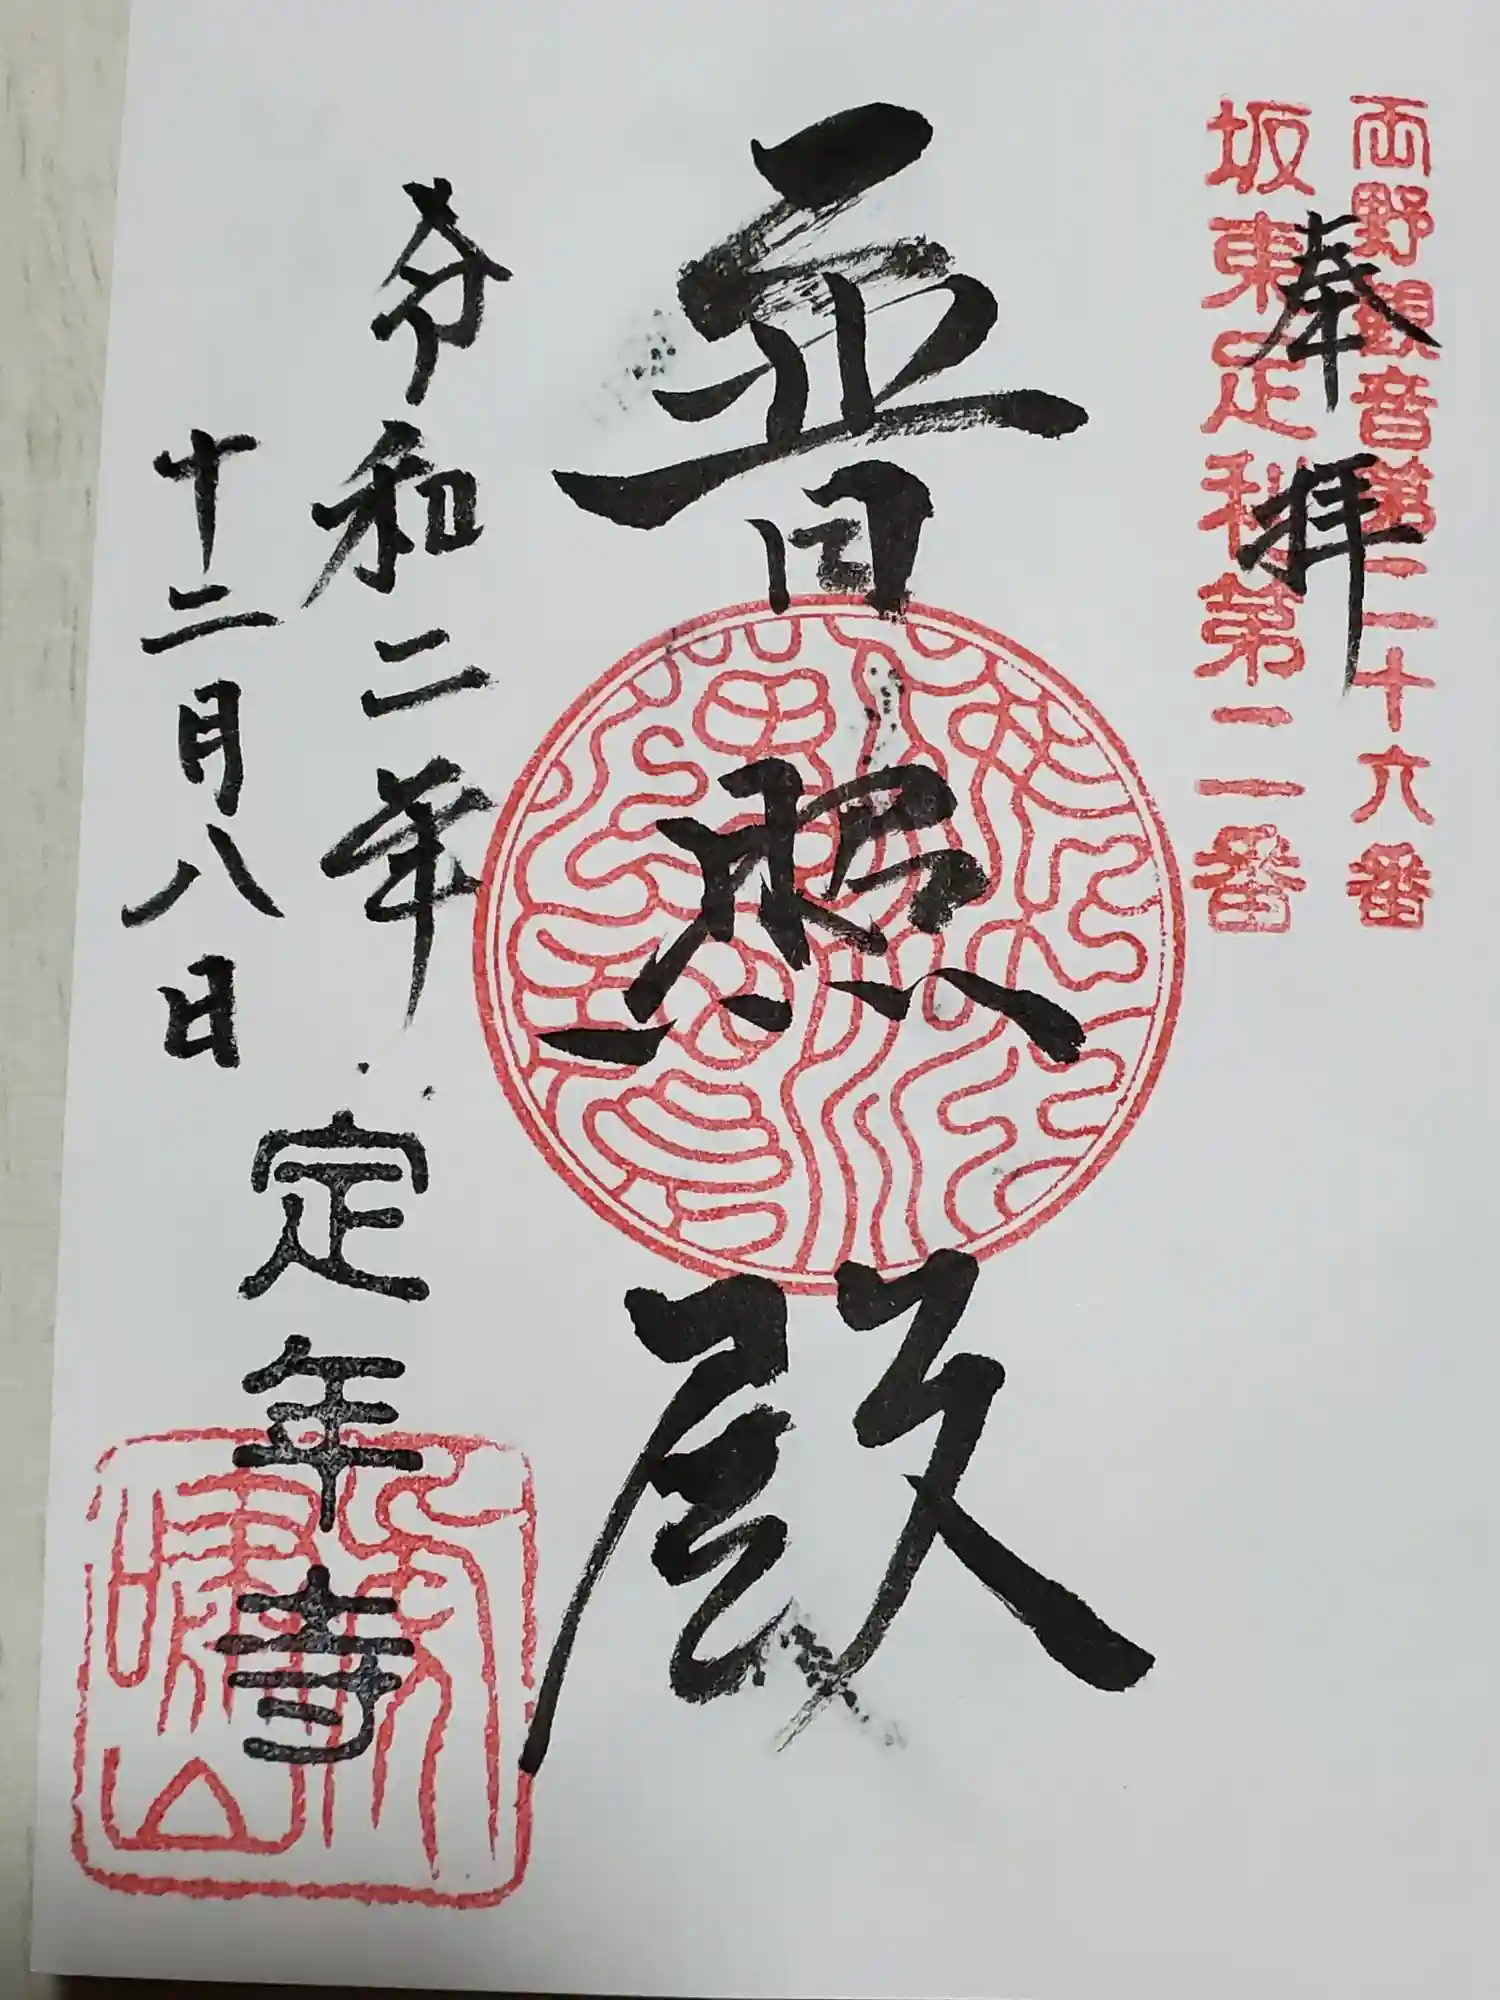 両野観音第二十六番
坂東足利第二一番
奉拝
普照殿
令和二年
十二月八日
定年寺